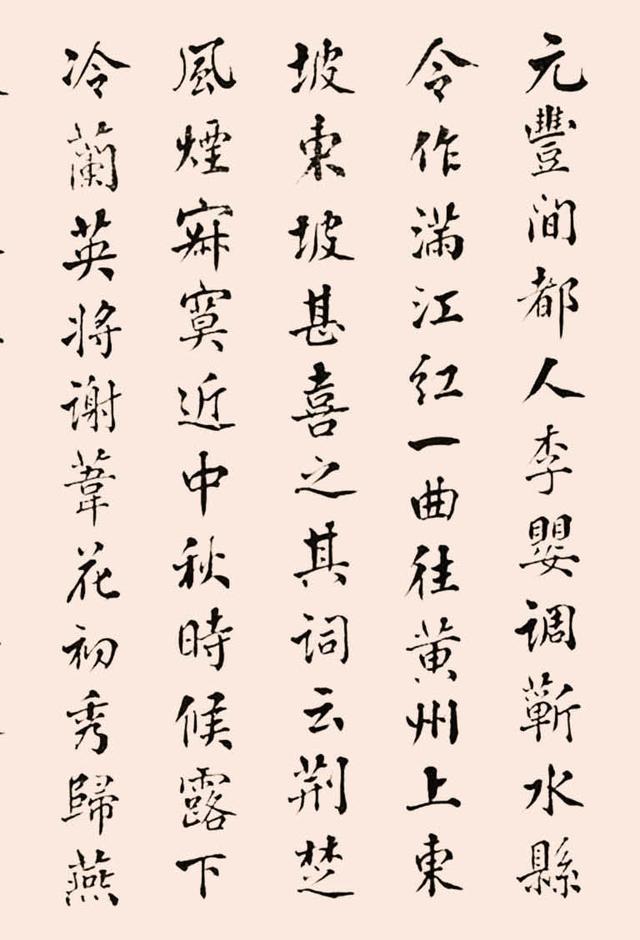 元豐间都人李嬰调蘄水縣
令作满江红一曲往黄州上東
坡東坡甚喜之其词云荆楚
風煙寂寞近中秋時候露下
冷蘭英将谢葦花初秀歸燕